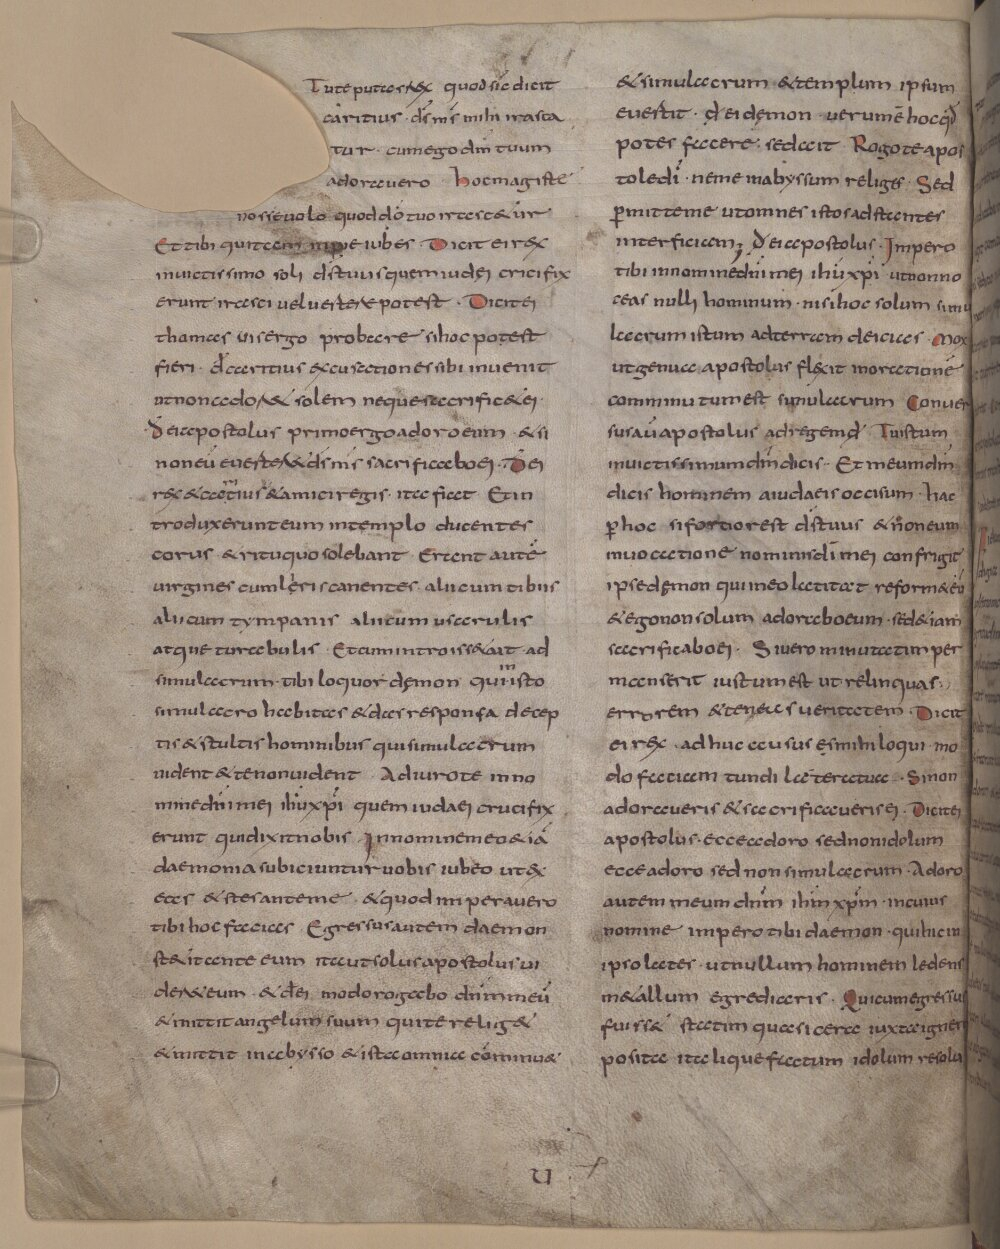 Tuteputas rex quod sic dicit
caritius · ds ms mihi irasca
tur · cum ego dnm tuum
adoravero hoc magis te
nosse volo quod dō tuo irasc&ur
Et tibi quitcem iubes Dicit ei rex
invictissimo soli ds tuus quem iudei crucifix
erunt irasci vel vertere potest · Dicit ei
thomas vis ergo probare si hoc potest
fieri · dt caritius excusationes sibi invenit
ut non ado& solem neque sacrific& ei ·
dt ei apostolus primo ergo adoro eum · & si
non eū everter& ds ms sacrificabo ei · Dt ei
rex & caritius & amici regis · ita fiat Et in
troduxerunt eum in templo ducentes
corus · & ritu quo solebant · Erant autē
virgines cum liris canentes · alii cum tibiis
alii cum tympanis alii cum uscerulis
atque turabulis · Et cum introiss& ait ad
simulacrum · tibi loquor demon qui in isto
simulacro habitas & das responsa decep
tis & stultis hominibus qui simulacrum
vident & te non vident Adiuro te in no
mine dni mei ihu xpi quem iudaei crucifix
erunt qui dixit nobis In nomine meo &iā
daemonia subiciuntur vobis iubeo ut ex
eas & stes ante me · & quod imperavero
tibi hoc facias Egressus autem daemon
st&it ante eum ita ut solus apostolus vi
der& eum · & dt ei modo rogabo dnm meū
& mittit angelum suum qui te relig&
& mittit in abysso & ista omnia comminu&
& simulacrum & templum ipsum
evertit · dt ei demon · verum ē hoc qd
potes facere · sed ait Rogo te apos
tole di · ne me in abyssum religes · Sed
permitte me ut omnes istos adstantes
interficiam; dt ei apostolus · Impero
tibi in nomine dni mei ihu xpi ut non no
ceas nulli hominum · nisi hoc solum simu
lacrum istum ad terram deicias · Mox
ut genua apostolus flexit in oratione
comminutum est simulacrum Conver
sus aū apostolus ad regem dt Tu istum
invictissimum dm dicis · Et meum dm
dicis hominem a iudaeis occisum · hac
per hoc si fortior est ds tuus & non eum
invocatione nominis di mei confrigit
ipse demon qui in eo latitat reform& eū
& ego non solum adorabo eum · sed &iam
sacrificabo ei · Si vero minutatim per
manserit iustum est ut relinquas
errorem & teneas veritatem · Dicit
ei rex · adhuc ausus es mihi loqui mo
do faciam tundi latera tua · Si non
adoraveris & sacrificaveris ei · Dicit ei
apostolus · ecce adoro sed non idolum
ecce adoro sed non simulacrum · Adoro
autem meum dnm ihm xpm · in cuius
nomine impero tibi daemon · qui hic in
ipso lates · ut nullum hominem ledens
in &allum egredieris · Qui cum egressus
fuiss& statim quasi cera iuxta ignem
posita ita liquefactum idolum resolu
U